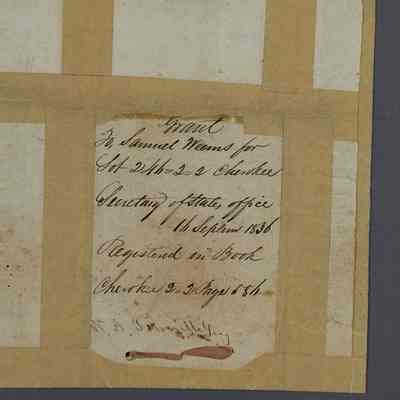 Grant
To Samuel Weems for
Lot 246=2=2 Cherokee
Secretary of states office
16 Septem 1836
Registered in Book
Cherokee 2=3 Page 686